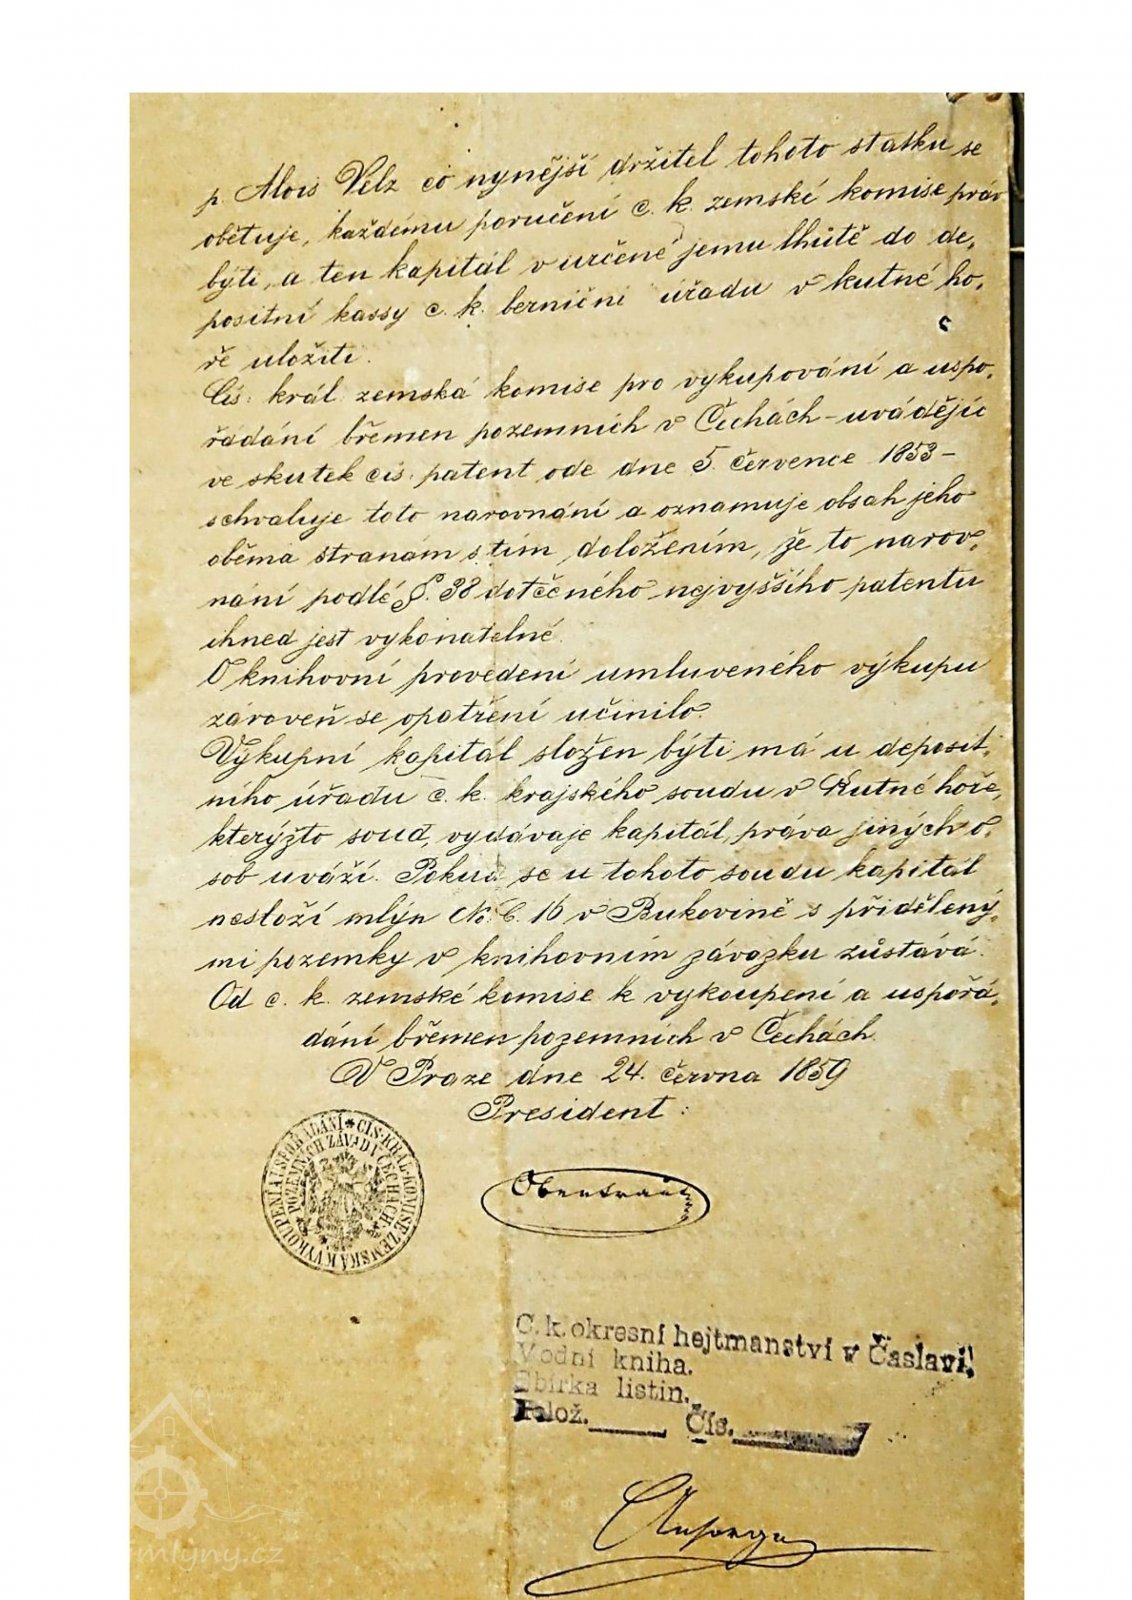 p. Alois Velz co nynější držitel tohoto statku se
obětuje, každému poručení c. k. zemské komise práv
býti, a ten kapitál v určené jemu lhůtě do de-
positní kassy c. k. berniční úřadu v kutné ho-
ře uložiti.
Cís. král. zemská komise pro vykupování a uspo-
řádání břemen pozemních v Čechách – uvádějíc
ve skutek cís. patent ode dne 5. července 1853 –
schvaluje toto narovnání a oznamuje obsah jeho
oběma stranám s tím doložením, že to narov-
nání podlé §. 38 dotčeného nejvyššího patentu
ihned jest vykonatelné.
O knihovní provedení umluveného výkupu
zároveň se opatření učinilo.
Výkupní kapitál složen býti má u deposit-
ního úřadu c. k. krajského soudu v Kutné hoře,
kterýžto soud, vydávaje kapitál, práva jiných o-
sob uváží. Pokud se u tohoto soudu kapitál
nesloží mlýn N. C. 16 v Bukovině s přidělený-
mi pozemky v knihovním závazku zůstává.
Od c. k. zemské komise k vykoupení a uspořá-
dání břemen pozemních v Čechách.
V Praze dne 24. června 1859
President:
CIS. KRAL. KOMISE ZEMSKÁ K VYKOUPENÍ A USPOŘÁDÁNÍ
POZEMNÍCH ZÁVAD V ČECHÁCH
Obentraut
C. k. okresní hejtmanství v Čáslavi.
Vodní kniha.
Sbírka listin.
Polož. Čís.
mlyny.cz